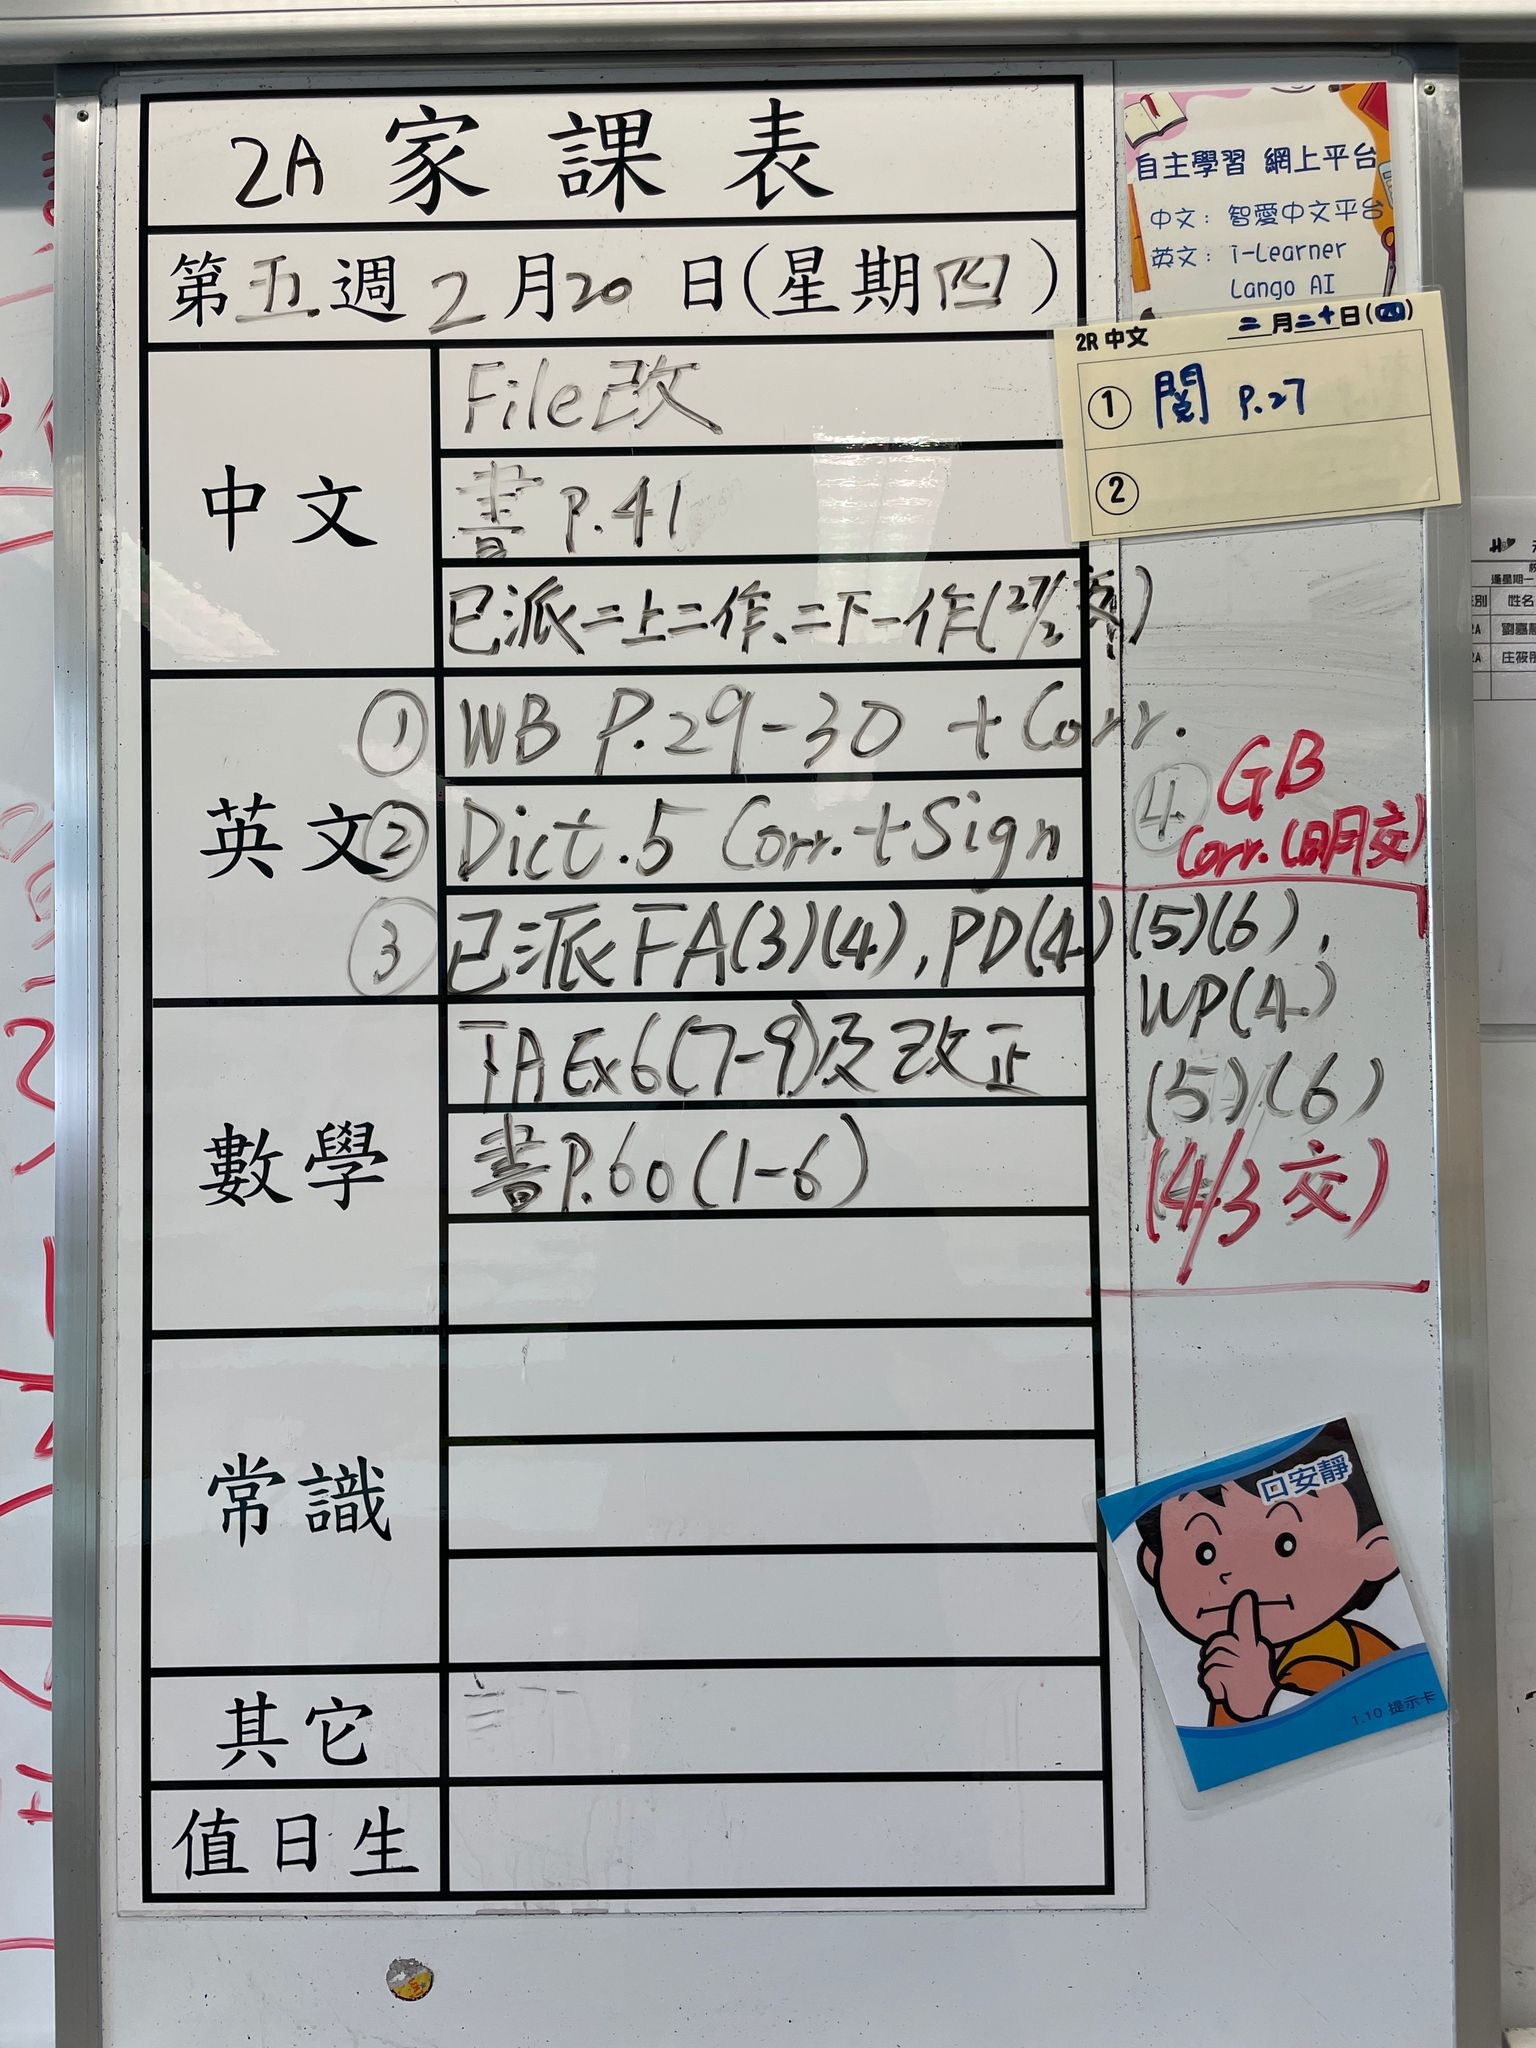 2A 家課表
第五週 2月20日(星期四)
中文
File改
書 P.41
已派二上二作、二下一作(27/2交)
英文
① WB P.29-30 + Corr.
② Dict.5 Corr.+Sign
③ 已派 FA(3)(4), PD(4)(5)(6),
WP(4)
(5)(6)
(4/3 交)
④ GB
Corr.(明交)
數學
TA Ex6(7-9)及改正
書P.60(1-6)
常識
其它
值日生
自主學習 網上平台
中文: 智愛中文平台
英文: i-Learner
Lango AI
2R 中文 二月二十日(四)
① 閱 P.27
②
口安靜
1.10 提示卡
逢星期一
姓名